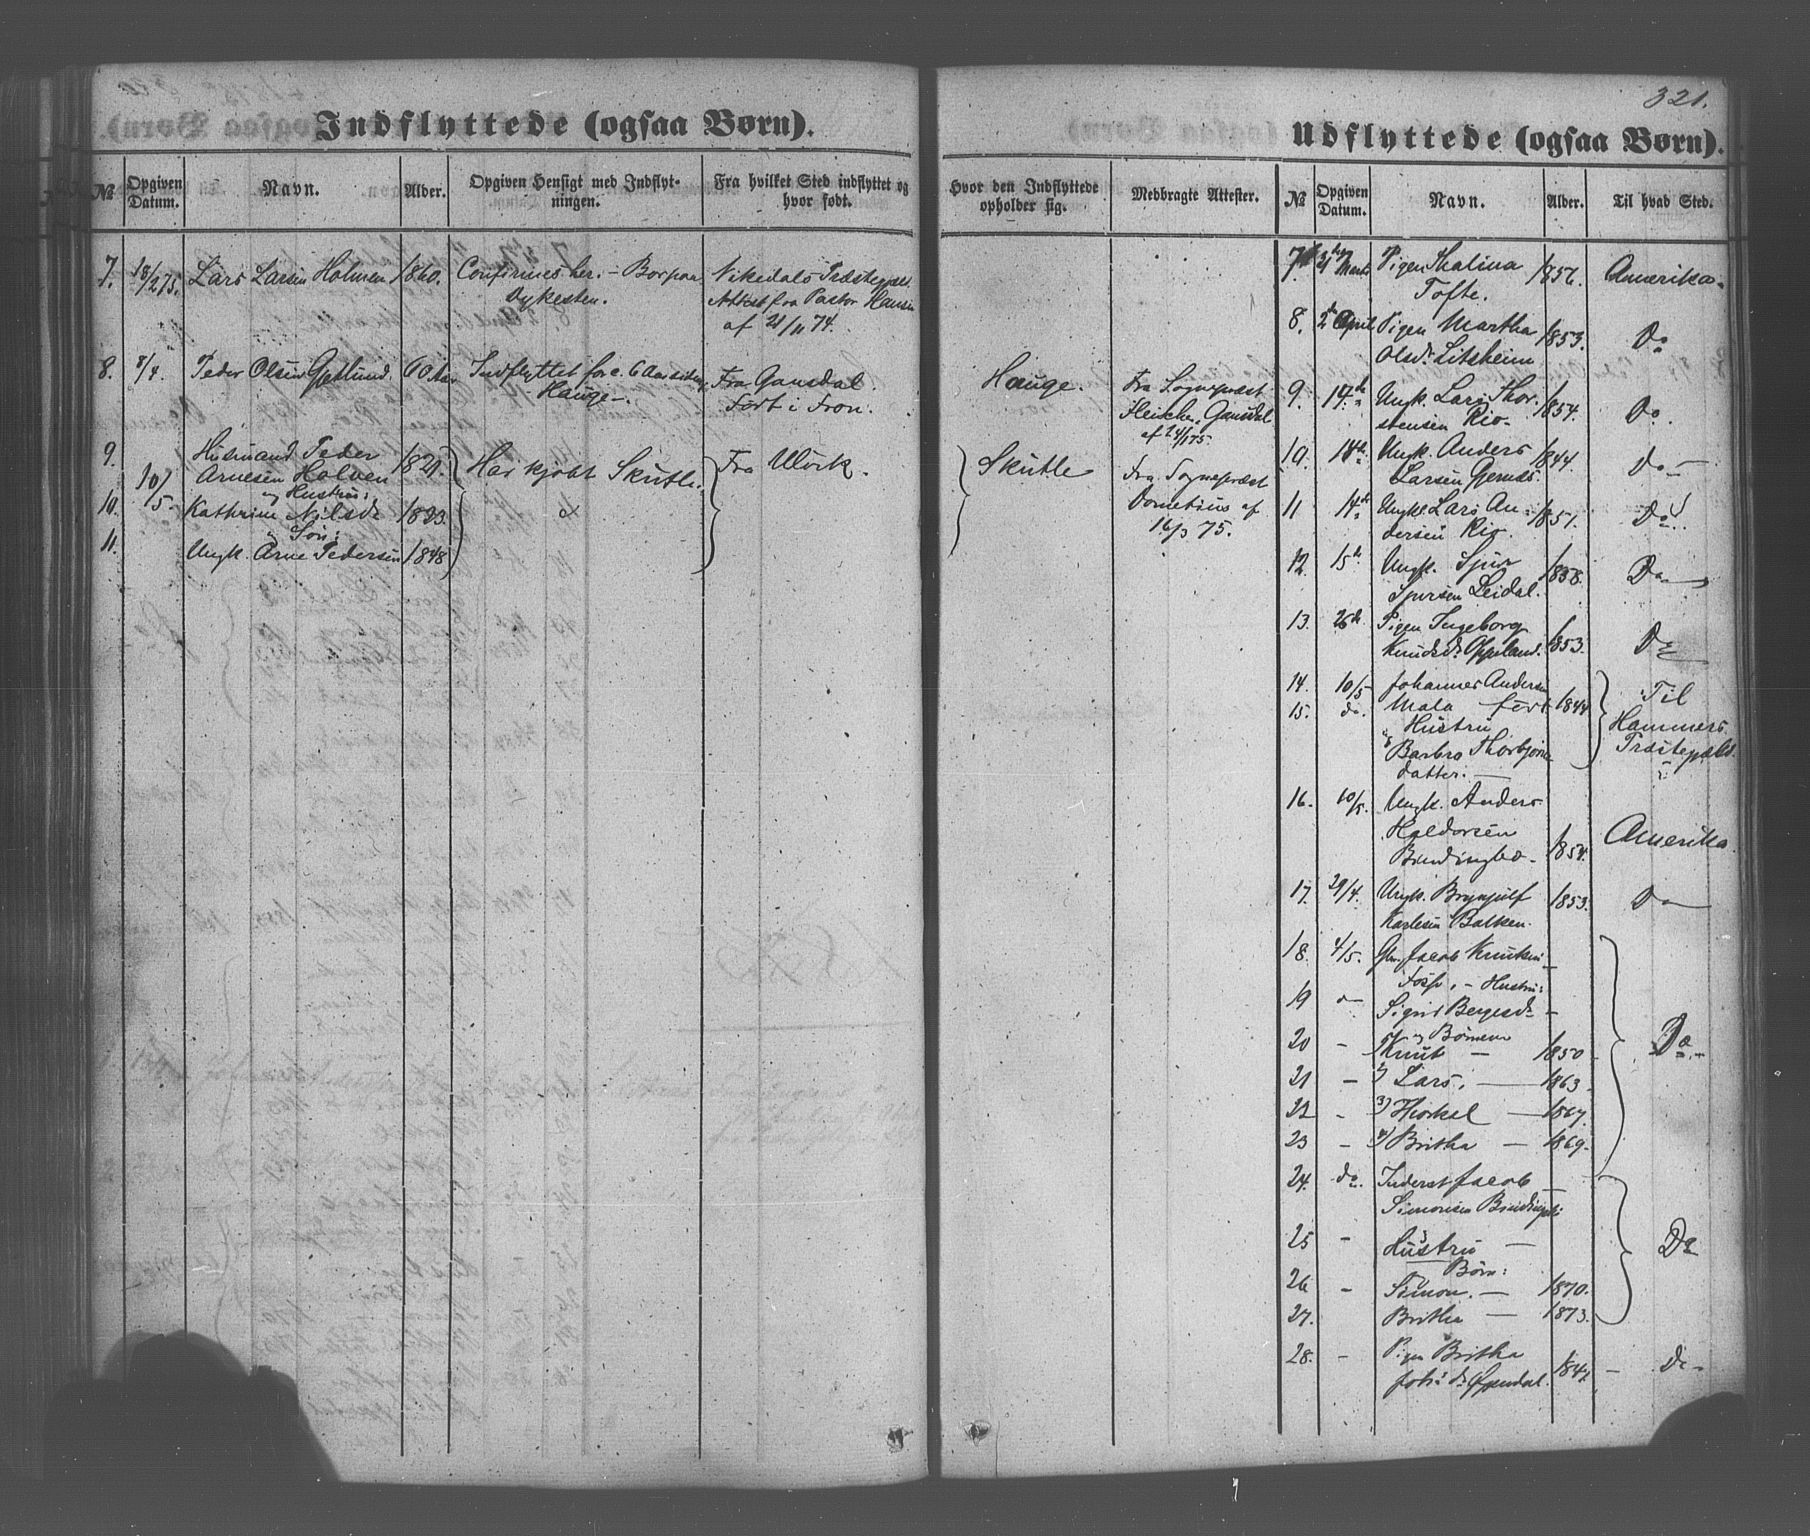 321.
Indflyttede (ogsaa Børn).
№ Opgiven Datum. Navn. Alder. Opgiven Hensigt med Indflyt- ningen. Fra hvilket Sted indflyttet og hvor født.
7. 18/2 75. Lars Larsen Holmen 1860. Confirmes her. – Bor paa Vikedals Præstegjeld.
Dykesten. Attest fra Pastor Hansen
af 21/11 74.
8. 8/4. Peder Olsen 60 Aar Indflyttet for c. 6 Aar siden Fra
Hauge. Født i Fron.
9. Husmand Peder
Arnesen Holven 1821. Har kjøbt Skutle. Fra Ulvik.
10/5. og Hustru:
10. Kathrine Nilsdr 1823.
og Søn:
11. Ungk. Arne Pedersen 1848
Udflyttede (ogsaa Børn).
Hvor den Indflyttede opholder sig. Medbragte Attester. № Opgiven Datum. Navn. Alder. Til hvad Sted.
Hauge. Fra Sognepræst
Fleischer
af 24/1 75.
Skutle Fra Sognepræst
af
16/3 75.
7. Marts Pigen 1856. Amerika.
Tofte.
8. 2d April Pigen Martha 1853. Do
Olsdr Litsheim
9. 14de Ungk. Lars Thor-
stensen Rio. 1854. Do.
10. 14de Ungk. Anders 1844. Do –
Larsen
11 14de Ungk. Lars An- 1851. Do.
dersen Rio.
12. 15de Ungk. Sjur 1858. Do
Sjursen Leidal.
13. 26de Pigen Ingeborg
Knudsdr 1853. Do
14. 10/5 Johannes Andersen Til
15. do. Mala født 1844 Hammers
Hustru Præstegjeld.
Barbro Thorbjørns
datter. –
16. 10/5. Ungk. Anders
Haldorsen Amerika.
1854.
17. 29/4. Ungk. Brynjulf 1853. Do
Karlesen Balken.
18. 4/5. Gbr. Jacob Knutsen
– Hustru:
19 do Sigrid
og Børnene
20 – 1) Knut – 1850 – Do. –
21 – 2) Lars. – 1863 –
22 – 3) – 1867.
23 – 4) Britha – 1869.
24. do. Inderst Jacob
Simonsen
25 – Hustru – Do
Børn:
26 – Simon. – 1870.
27. Britha – 1873.
28. – Pigen Britha
1847. – Do –